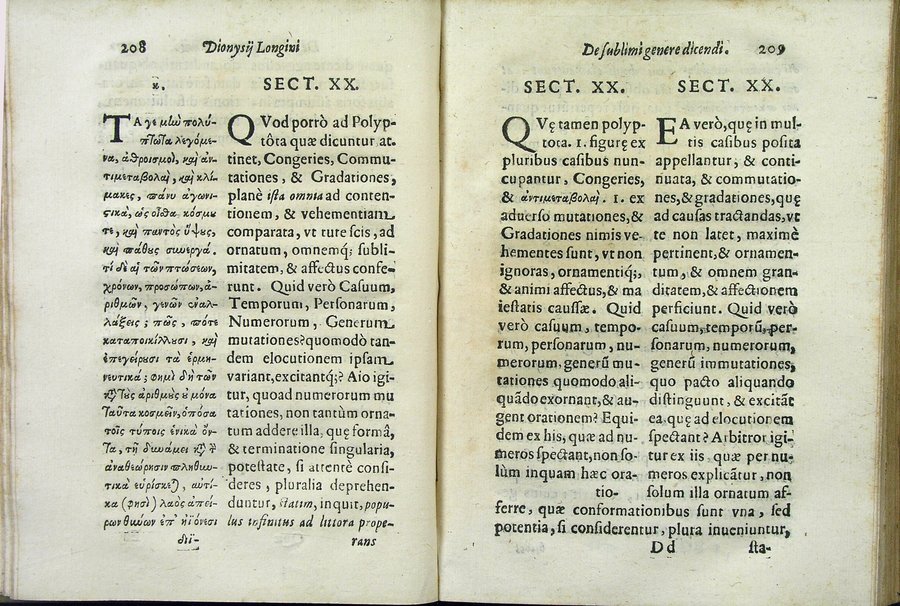 208 Dionysij Longini
κ.
ΤΑ γε μὴν πολύ-
πτωτα λεγόμε-
να, ἀθροισμοὶ, καὶ ἀν-
τιμεταβολαὶ, καὶ κλί-
μακες, πάνυ ἀγωνι-
στικὰ, ὡς οἶσθα κόσμου
τε, καὶ παντὸς ὕψους,
καὶ πάθους συνεργά.
τί δὲ αἱ τῶν πτώσεων,
χρόνων, προσώπων, ἀ-
ριθμῶν, γενῶν ἐναλ-
λάξεις; πῶς, πότε
καταποικίλλουσι, καὶ
ἐπεγείρουσι τὰ ἑρμη-
νευτικά; φημὶ δὴ τῶν
κατὰ τοὺς ἀριθμοὺς οὐ μόνα
ταῦτα κοσμεῖν, ὁπόσα
τοῖς τύποις ἑνικὰ ὄν-
τα, τῇ δυνάμει κατὰ τὴν
ἀναθεώρησιν πληθυν-
τικὰ εὑρίσκεται, αὐτί-
κα (φησὶ) λαὸς ἀπεί-
ρων θύνων ἐπ' ἠϊόνεσι
SECT. XX.
QVod porrò ad Polyp-
tôta quæ dicuntur at-
tinet, Congeries, Commu-
tationes, & Gradationes,
planè ista omnia ad conten-
tionem, & vehementiam
comparata, vt tute scis, ad
ornatum, omnemq; subli-
mitatem, & affectus confe-
runt. Quid verò Casuum,
Temporum, Personarum,
Numerorum, Generum
mutationes? quomodò tan-
dem elocutionem ipsam
variant, excitantq;? Aio igi-
tur, quoad numerorum mu
tationes, non tantùm orna-
tum addere illa, quę formâ,
& terminatione singularia,
potestate, si attentè consi-
deres, pluralia deprehen-
duntur, statim, inquit, popu-
lus infinitus ad littora prope-
rans
De sublimi genere dicendi. 209
SECT. XX.
QVę tamen polyp-
tota. 1. figurę ex
pluribus casibus nun-
cupantur, Congeries,
& ἀντιμεταβολαὶ. 1. ex
aduerso mutationes, &
Gradationes nimis ve-
hementes sunt, vt non
ignoras, ornamentiq;,
& animi affectus, & ma
iestatis caussæ. Quid
verò casuum, tempo-
rum, personarum, nu-
merorum, generū mu-
tationes quomodo ali-
quādo exornant, & au-
gent orationem? Equi-
dem ex his, quæ ad nu-
meros spectant, non so-
lùm inquam hæc ora-
tio-
SECT. XX.
EA verò, quę in mul-
tis casibus posita
appellantur, & conti-
nuata, & commutatio-
nes, & gradationes, quę
ad causas tractandas, vt
te non latet, maximè
pertinent, & ornamen-
tum, & omnem gran-
ditatem, & affectionem
perficiunt. Quid verò
casuum, temporū, per-
sonarum, numerorum,
generū immutationes,
quo pacto aliquando
distinguunt, & excitāt
ea quę ad elocutionem
spectant? Arbitror igi-
tur ex iis, quæ per nu-
meros explicātur, non
solum illa ornatum af-
ferre, quæ conformationibus sunt vna, sed
potentia, si considerentur, plura inueniuntur,
Dd sta-